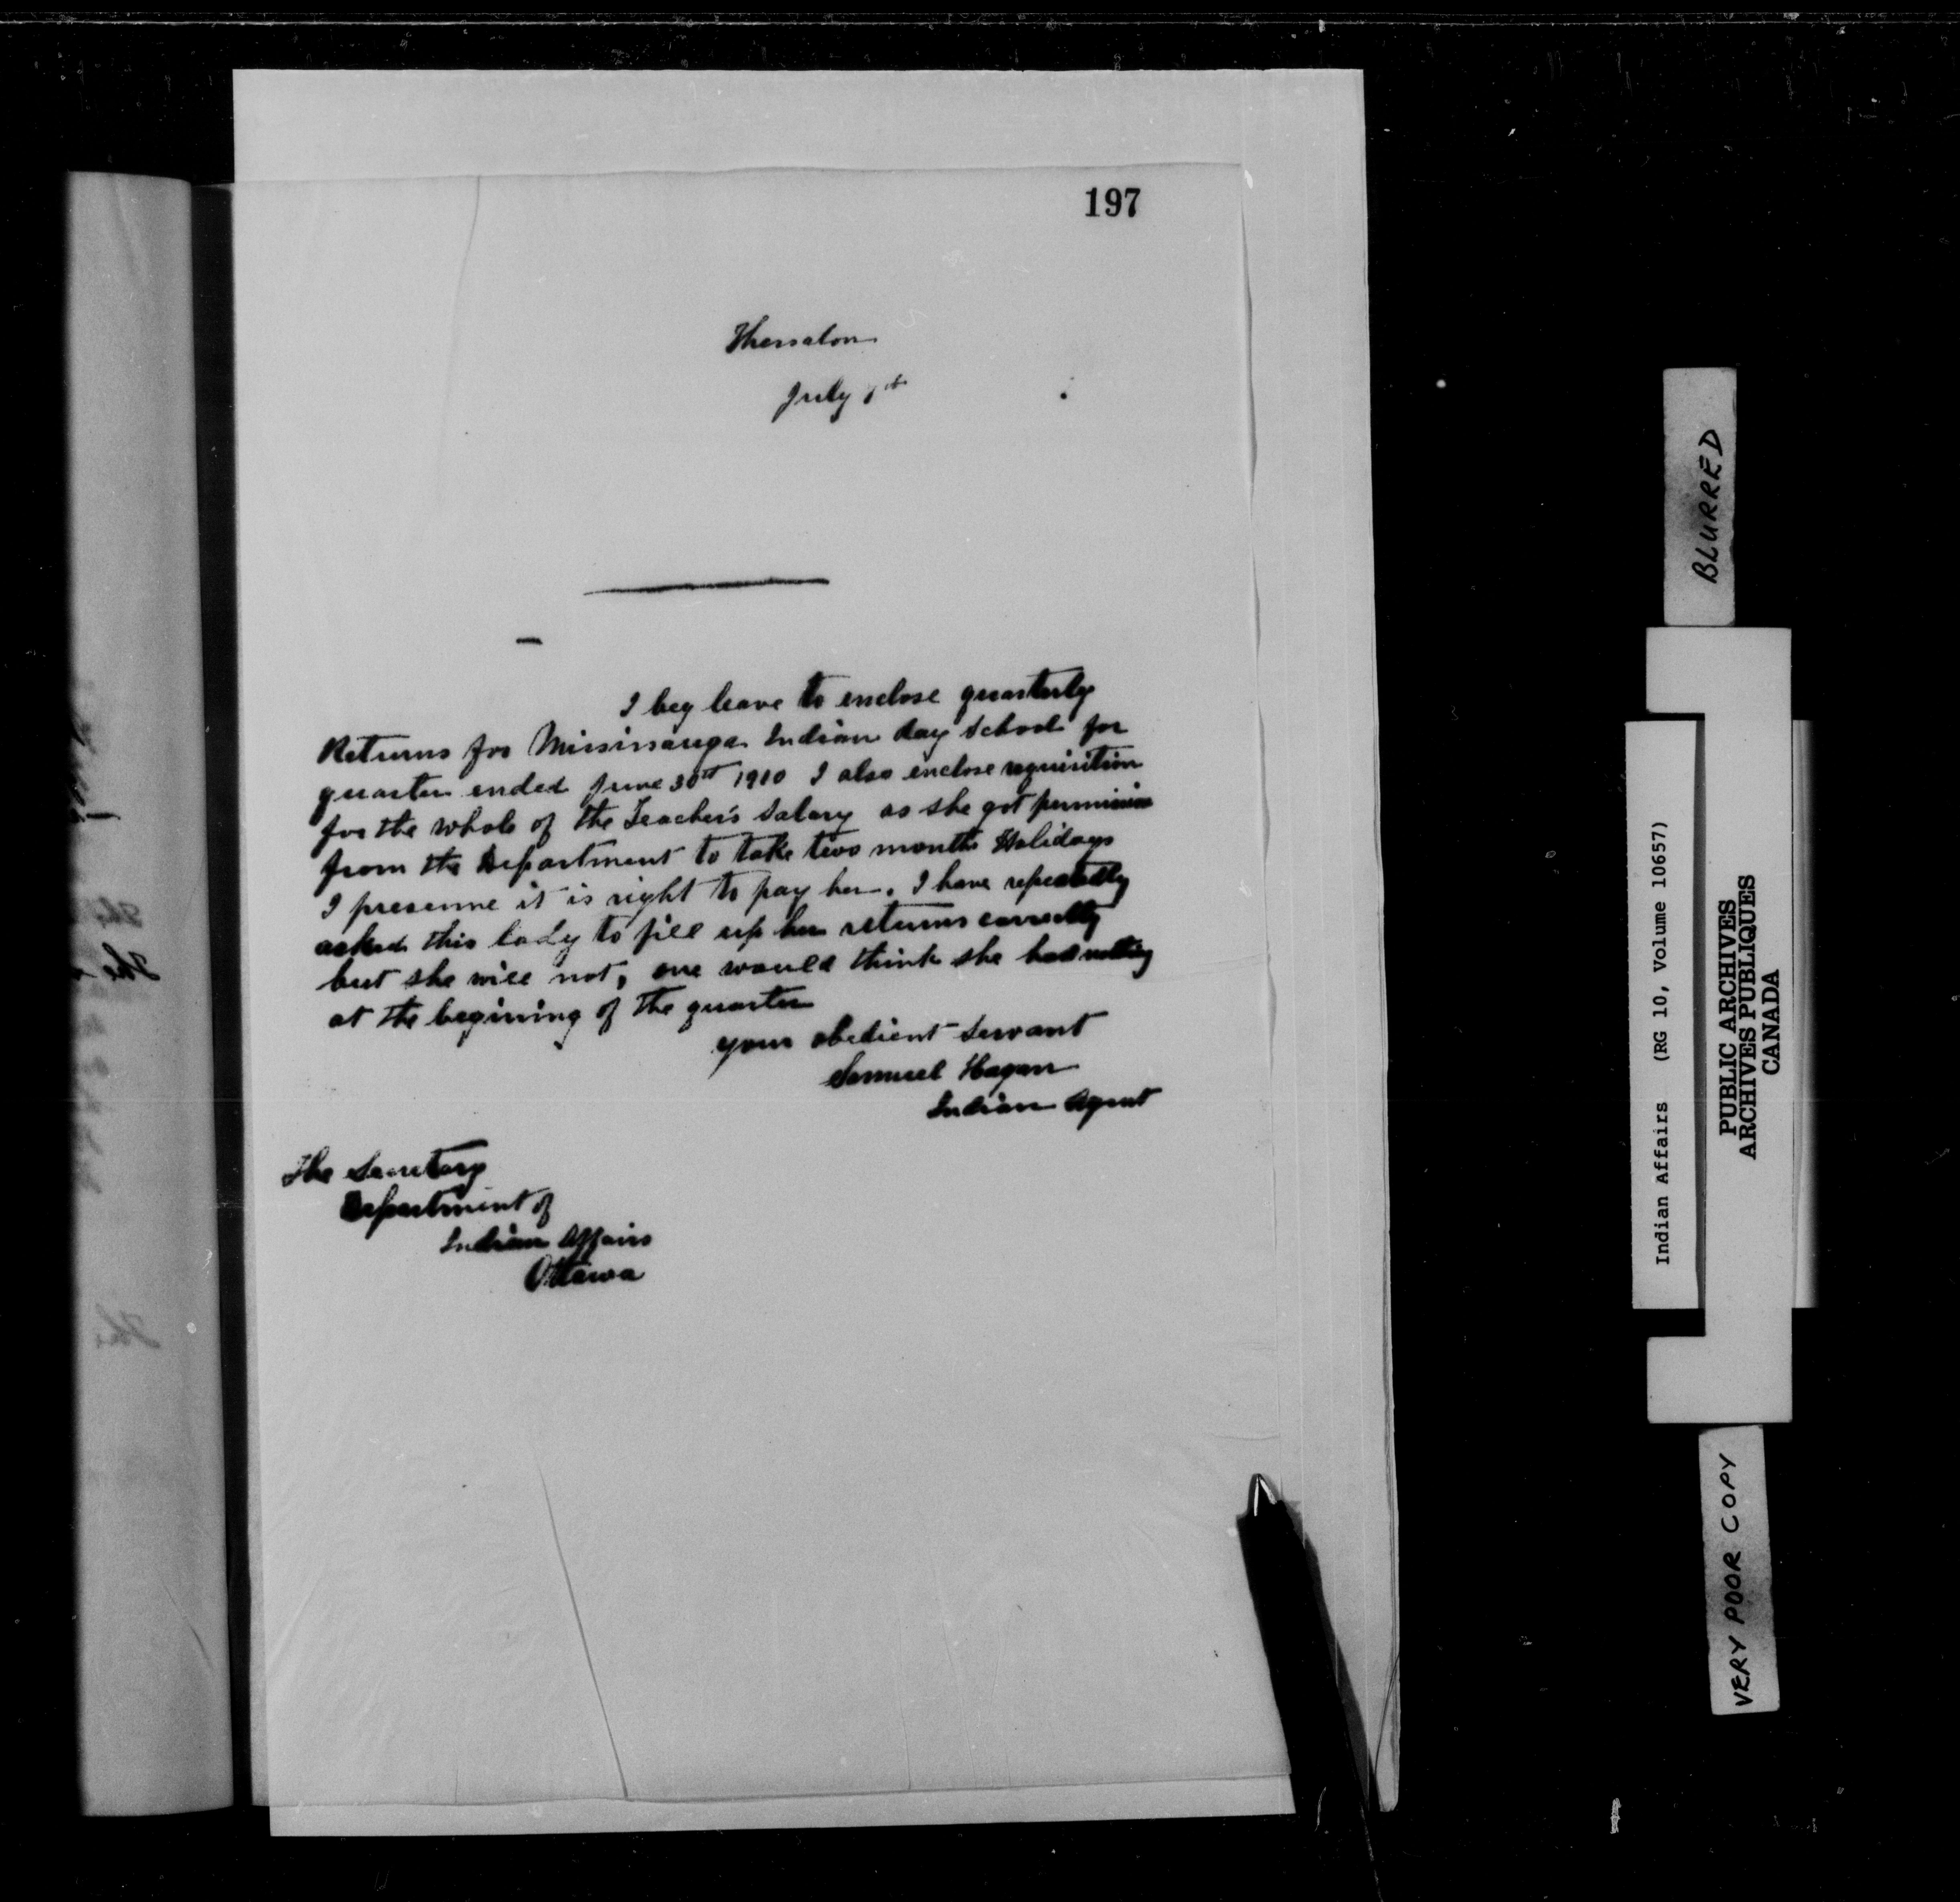 197
Thessalon
July
I beg leave to enclose quarterly
Returns for Mississauga Indian day School for
quarter ended June 30th 1910 I also enclose requisition
for the whole of the Teacher's Salary as she got permission
from the Department to take two months Holidays
I presume it is right to pay her. I have repeatedly
asked this lady to fill up her returns correctly
but she will not, one would think she had nothing
at the begining of the quarter
your obedient Servant
Samuel Hagan
Indian Agent
The Secretary
Department of
Indian Affairs
Ottawa
BLURRED
Indian Affairs (RG 10, Volume 10657)
PUBLIC ARCHIVES
ARCHIVES PUBLIQUES
CANADA
VERY POOR COPY